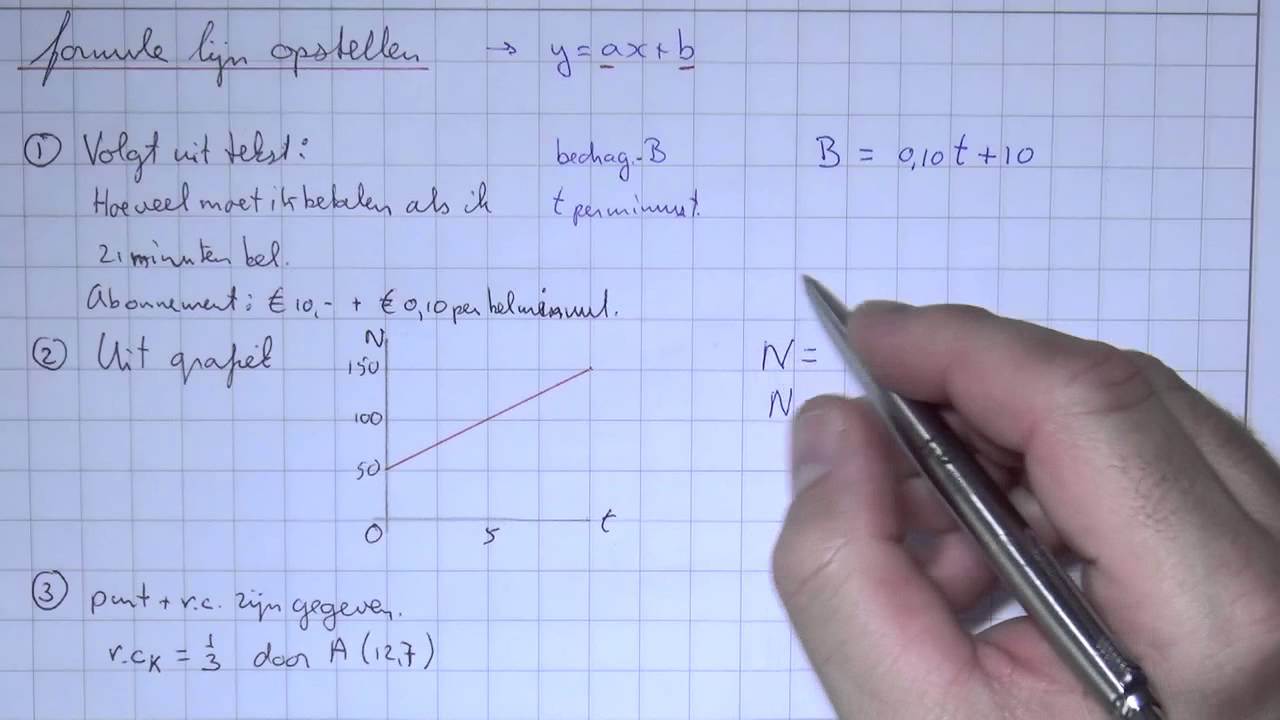 formule lijn opstellen → y = ax + b
① Volgt uit tekst:
Hoeveel moet ik betalen als ik
21 minuten bel.
Abonnement: € 10,- + € 0,10 per belminuut.
bedrag - B
t per minuut.
B = 0,10t + 10
② Uit grafiek
N
150
100
50
0
5
t
N =
N
③ punt + r.c. zijn gegeven.
r.c_K = 1/3 door A (12,7)